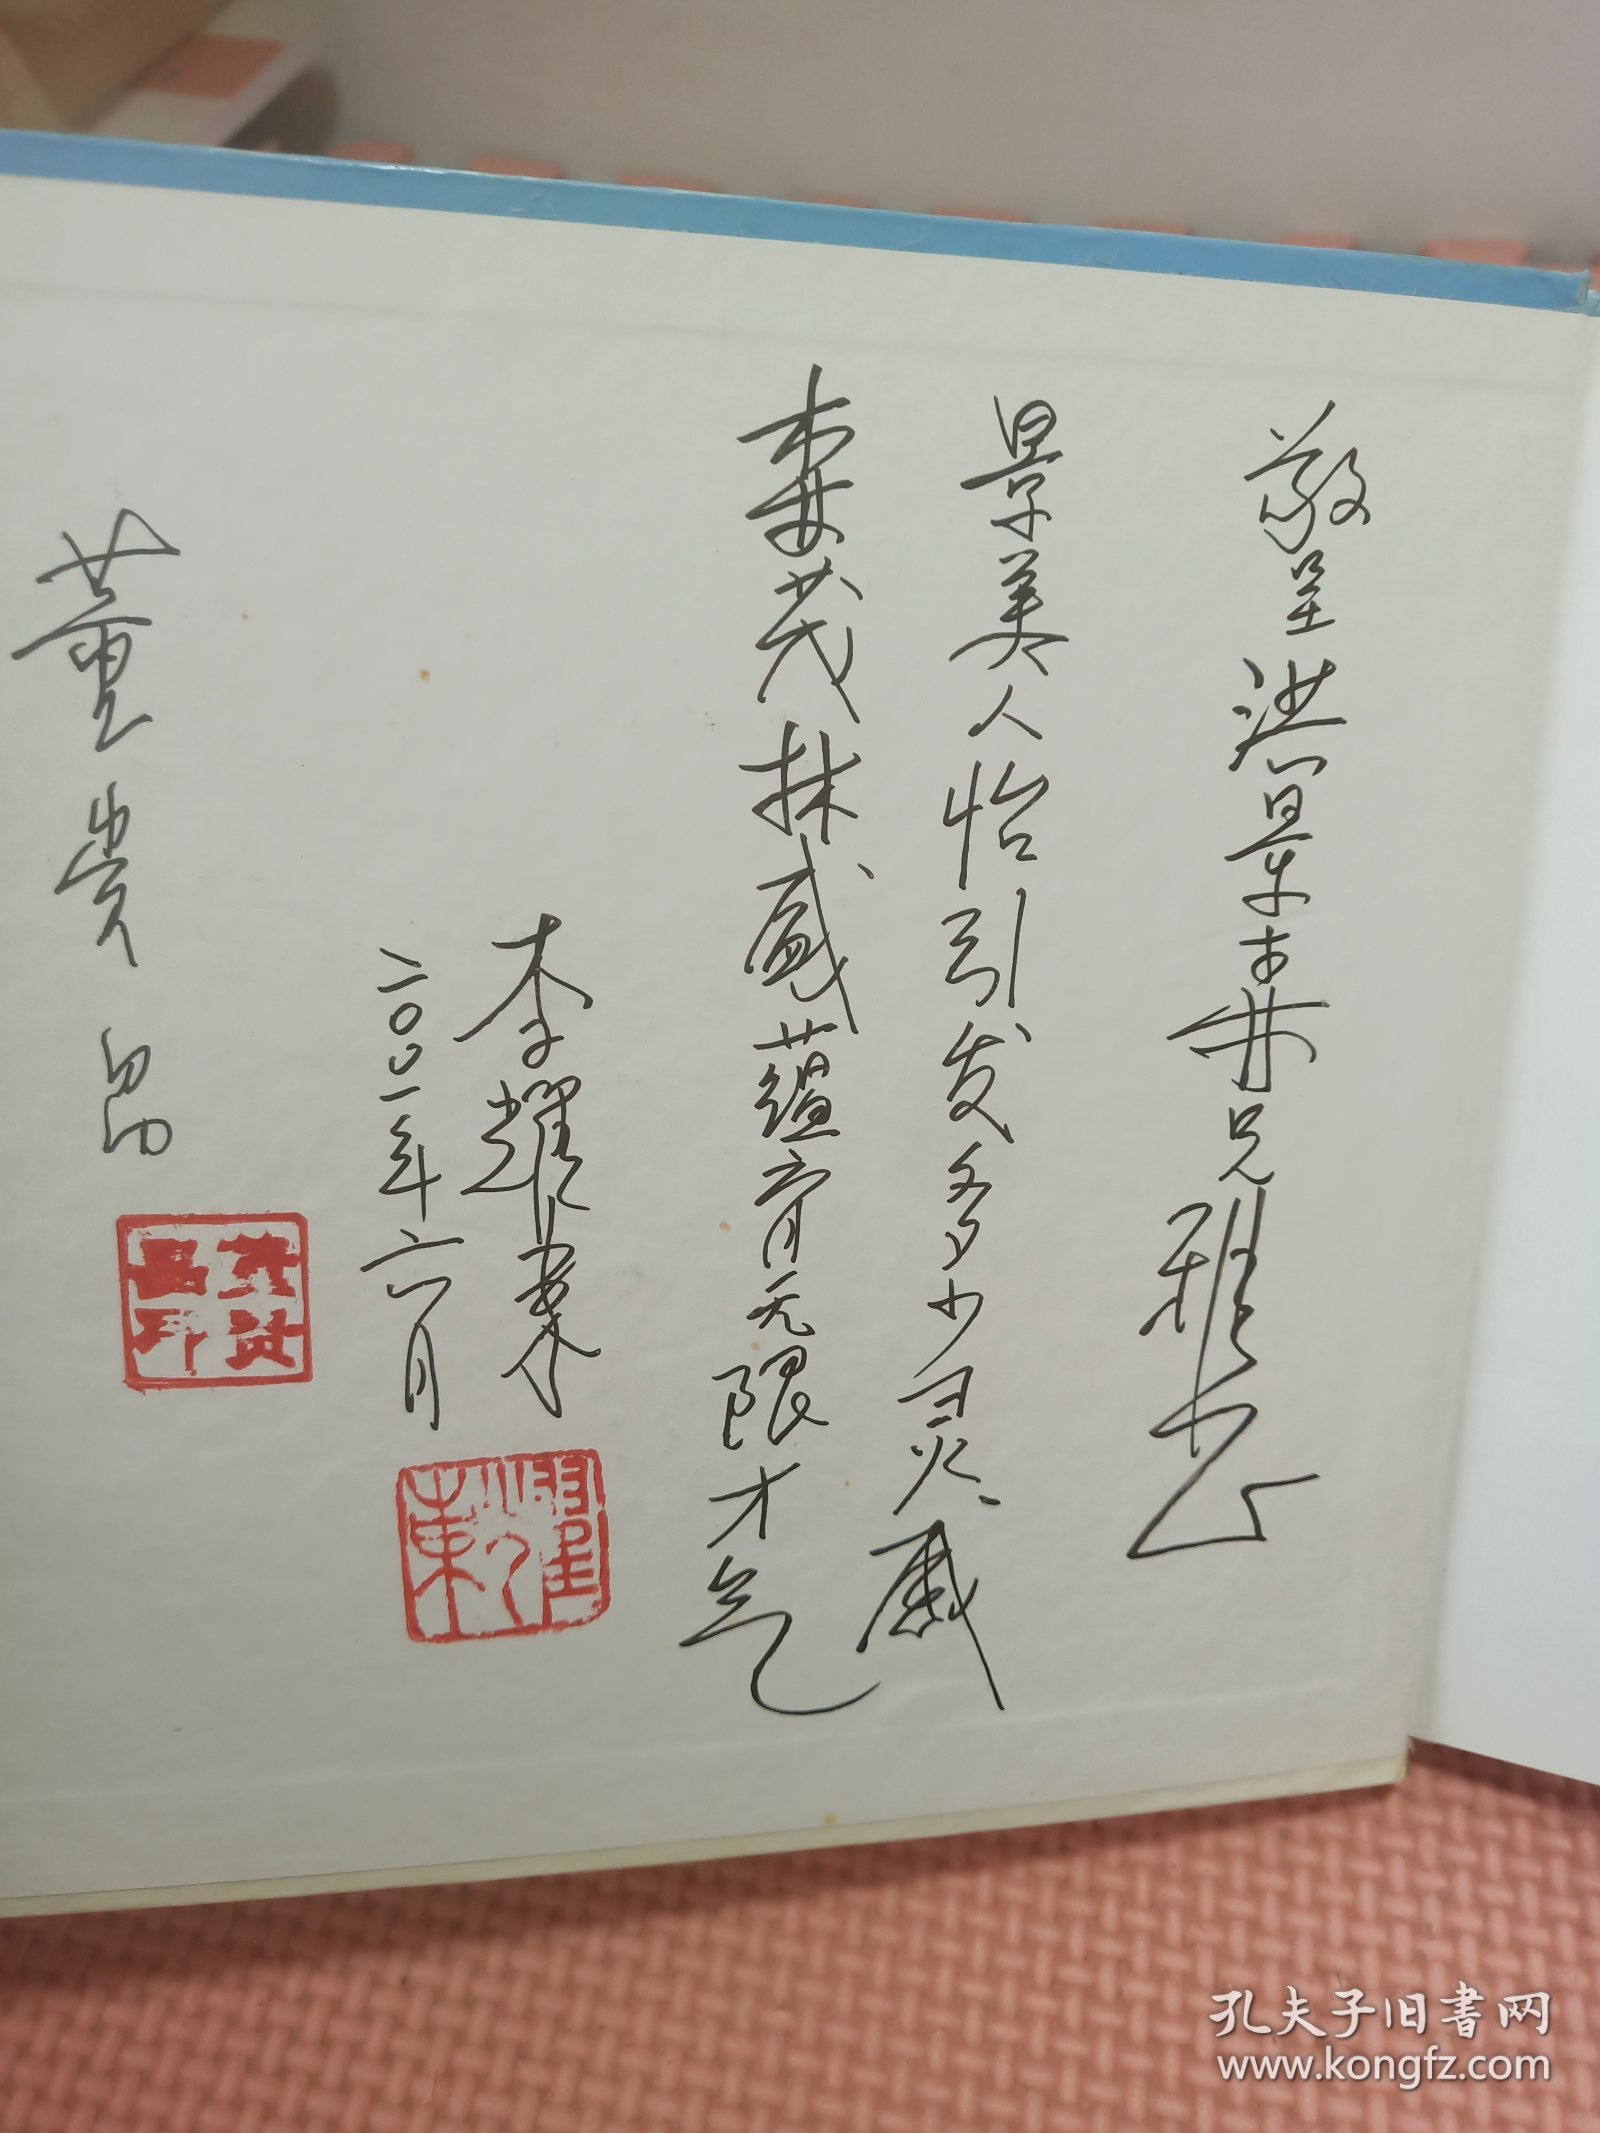 敬呈洪景兄雅正
景美人怡引发多少灵感
茂林盛蕴育无限才气
李耀東
二〇〇一年六月
耀東
董贵昌
董贵昌印
孔夫子旧书网
www.kongfz.com